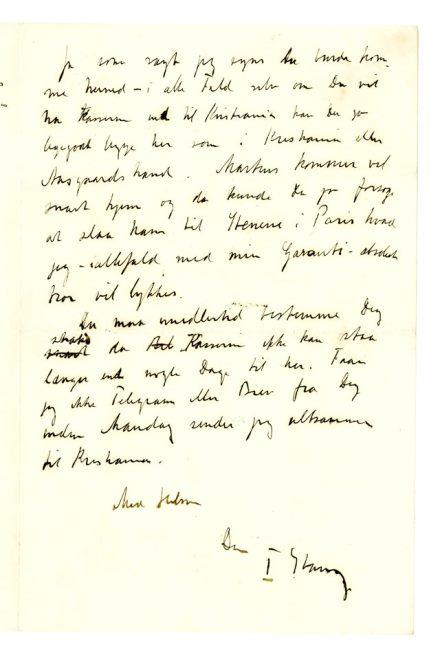 Ja som sagt jeg synes Du burde kom-
me herned – i alle Fald selv om Du vil
ha Kasserne ind til Kristiania kan Du jo
ligegodt bygge her som i Kristiania eller
Aasgaardstrand. Markus kommer vel
snart hjem og da kunde Du jo forsøge
at slaa ham til Stenene i Paris hvad
jeg – iallefald med min Garanti – absolut
tror vil lykkes.
Du maa imidlertid bestemme Dig
strax da Kasserne ikke kan staa
længer end nogle Dage til her. Faar
jeg ikke Telegram eller Brev fra Dig
inden Mandag sender jeg altsammen
til Kristiania.
Med Hilsen
Din